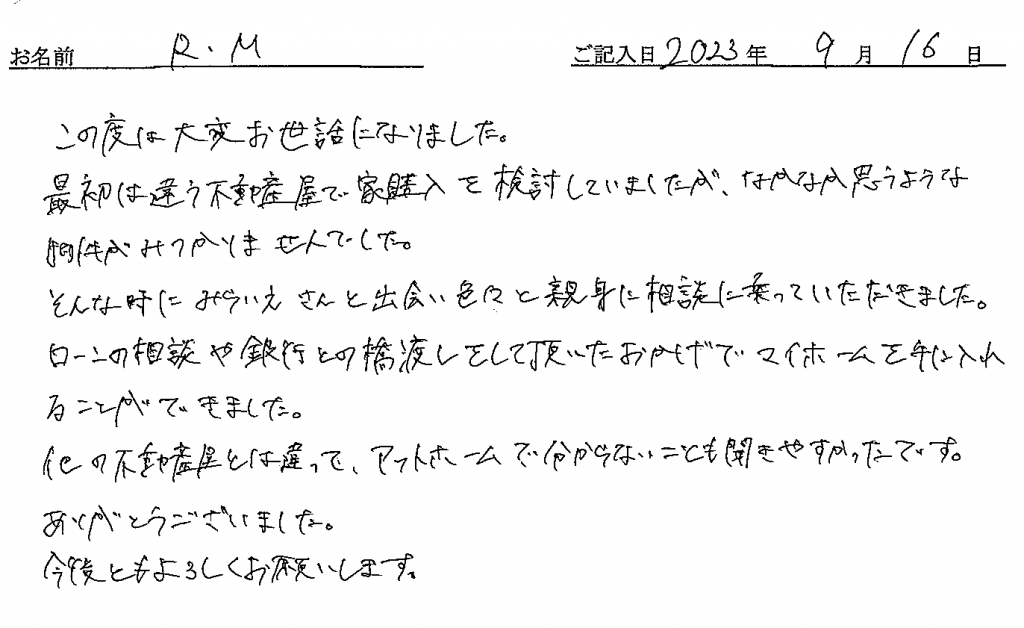 お名前 R.M ご記入日 2023年 9月 16日
この度は大変お世話になりました。
最初は違う不動産屋で家購入を検討していましたが、なかなか思うような
物件がみつかりませんでした。
そんな時にみらいえさんと出会い色々と親身に相談に乗っていただきました。
ローンの相談や銀行との橋渡しをして頂いたおかげでマイホームを手に入れ
ることができました。
他の不動産屋とは違って、アットホームで分からないことも聞きやすかったです。
ありがとうございました。
今後ともよろしくお願いします。